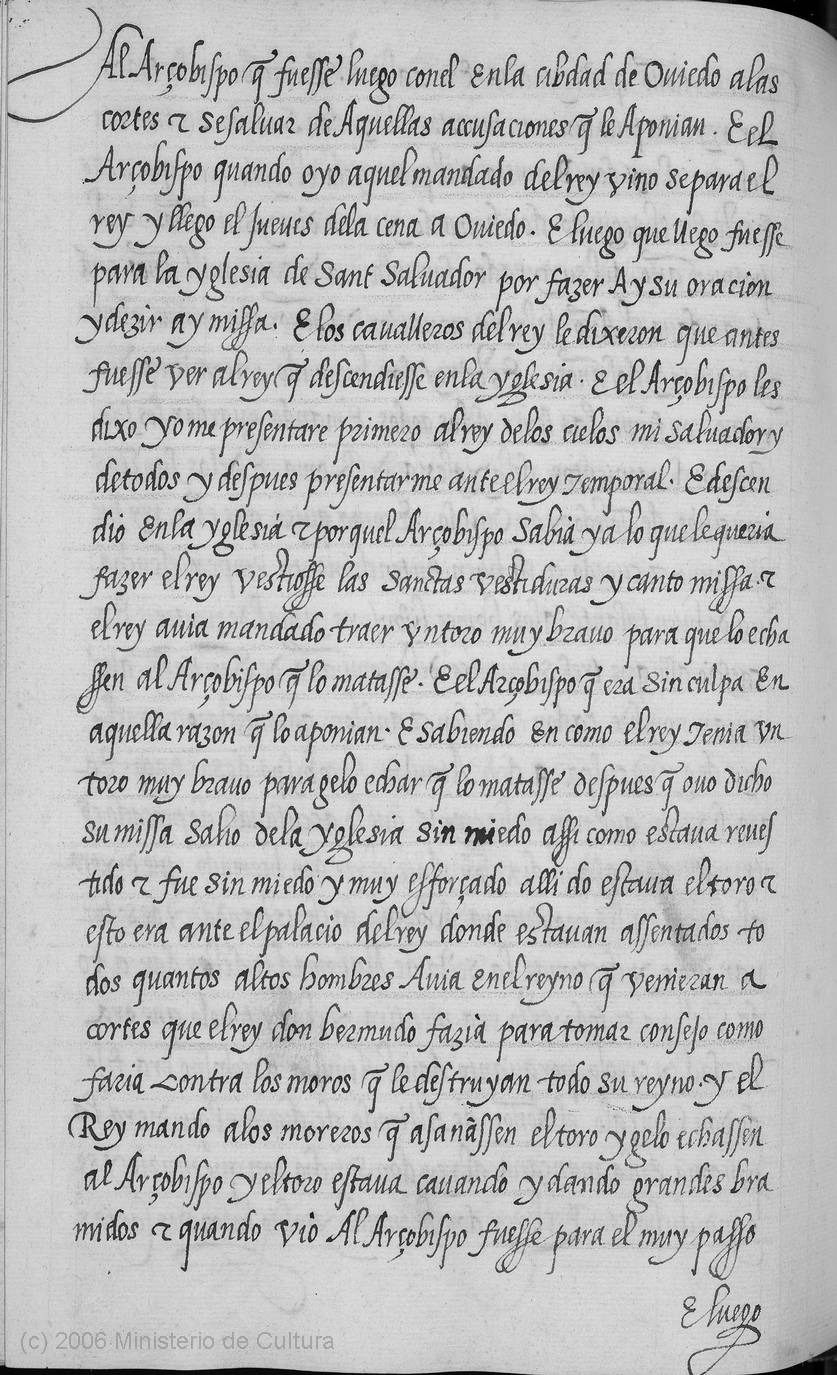 Al Arçobispo q̃ fuesse luego conel Enla cibdad de Oviedo alas
cortes τ sesaluar de Aquellas accusaciones q̃ le Aponian. E el
Arçobispo quando oyo aquel mandado del rey vino se para el
rey y llego el Jueves dela cena a Oviedo. E luego que llego fuesse
para la yglesia de Sant Salvador por fazer Ay su oracion
y dezir ay missa. E los cavalleros del rey le dixeron que antes
fuesse ver al rey q̃ descendiesse en la yglesia. E el Arçobispo les
dixo yo me presentare primero al rey delos cielos mi Saluador y
de todos y despues presentarme ante el rey Temporal. E descen
dio En la yglesia τ porquel Arçobispo Sabia ya lo que le queria
fazer el rey vestiosse las Sanctas vestiduras y canto missa. τ
el rey auia mandado traer un toro muy brauo para que lo echa
ssen al Arçobispo q̃ lo matasse. E el Arçobispo q̃ era sin culpa En
aquella razon q̃ lo aponian. E sabiendo En como el rey Tenia un
toro muy brauo para gelo echar q̃ lo matasse despues q̃ ovo dicho
Su missa Salio dela yglesia sin miedo assi como estaua reues
tido τ fue sin miedo y muy esforçado alli do estava el toro τ
esto era ante el palacio del rey donde estauan assentados to
dos quantos altos hombres Auia en el reyno q̃ venieran a
cortes que el rey don bermudo fazia para tomar consejo como
faria contra los moros q̃ le destruyan todo su reyno. y el
Rey mando alos moreros q̃ asanãssen el toro y gelo echassen
al Arçobispo y el toro estava cavando y dando grandes bra
midos τ quando vio Al Arçobispo fuesse para el muy passo
E luego
(c) 2006 Ministerio de Cultura